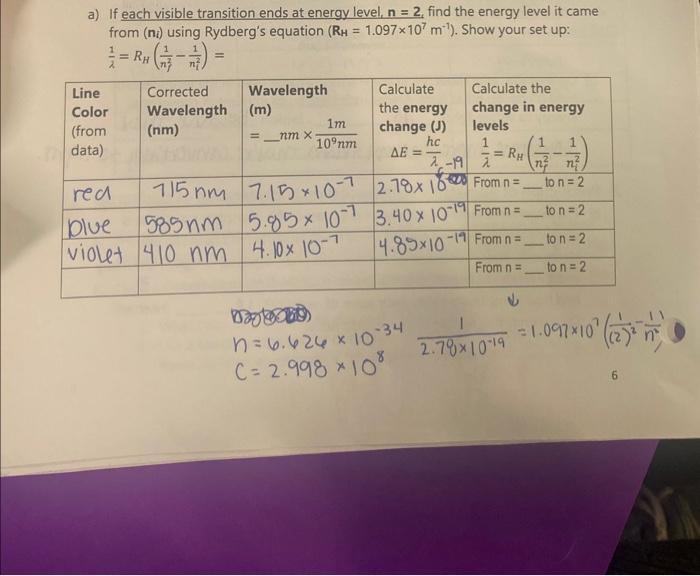 a) If each visible transition ends at energy level, n = 2, find the energy level it came
from (nᵢ) using Rydberg's equation (R_H = 1.097×10⁷ m⁻¹). Show your set up:
1/λ = R_H (1/n_f² − 1/n_i²) =
Line Color (from data) | Corrected Wavelength (nm) | Wavelength (m) = __nm × 1m/10⁹nm | Calculate the energy change (J) ΔE = hc/λ | Calculate the change in energy levels 1/λ = R_H (1/n_f² − 1/n_i²)
red | 715nm | 7.15×10⁻⁷ | 2.78×10⁻¹⁹ | From n = ___ to n = 2
blue | 585nm | 5.85×10⁻⁷ | 3.40×10⁻¹⁹ | From n = ___ to n = 2
violet | 410 nm | 4.10×10⁻⁷ | 4.85×10⁻¹⁹ | From n = ___ to n = 2
From n = ___ to n = 2
h = 6.626 × 10⁻³⁴
1/2.78×10⁻¹⁹ = 1.097×10⁷ (1/(2)² − 1/n²)
C = 2.998 × 10⁸
6